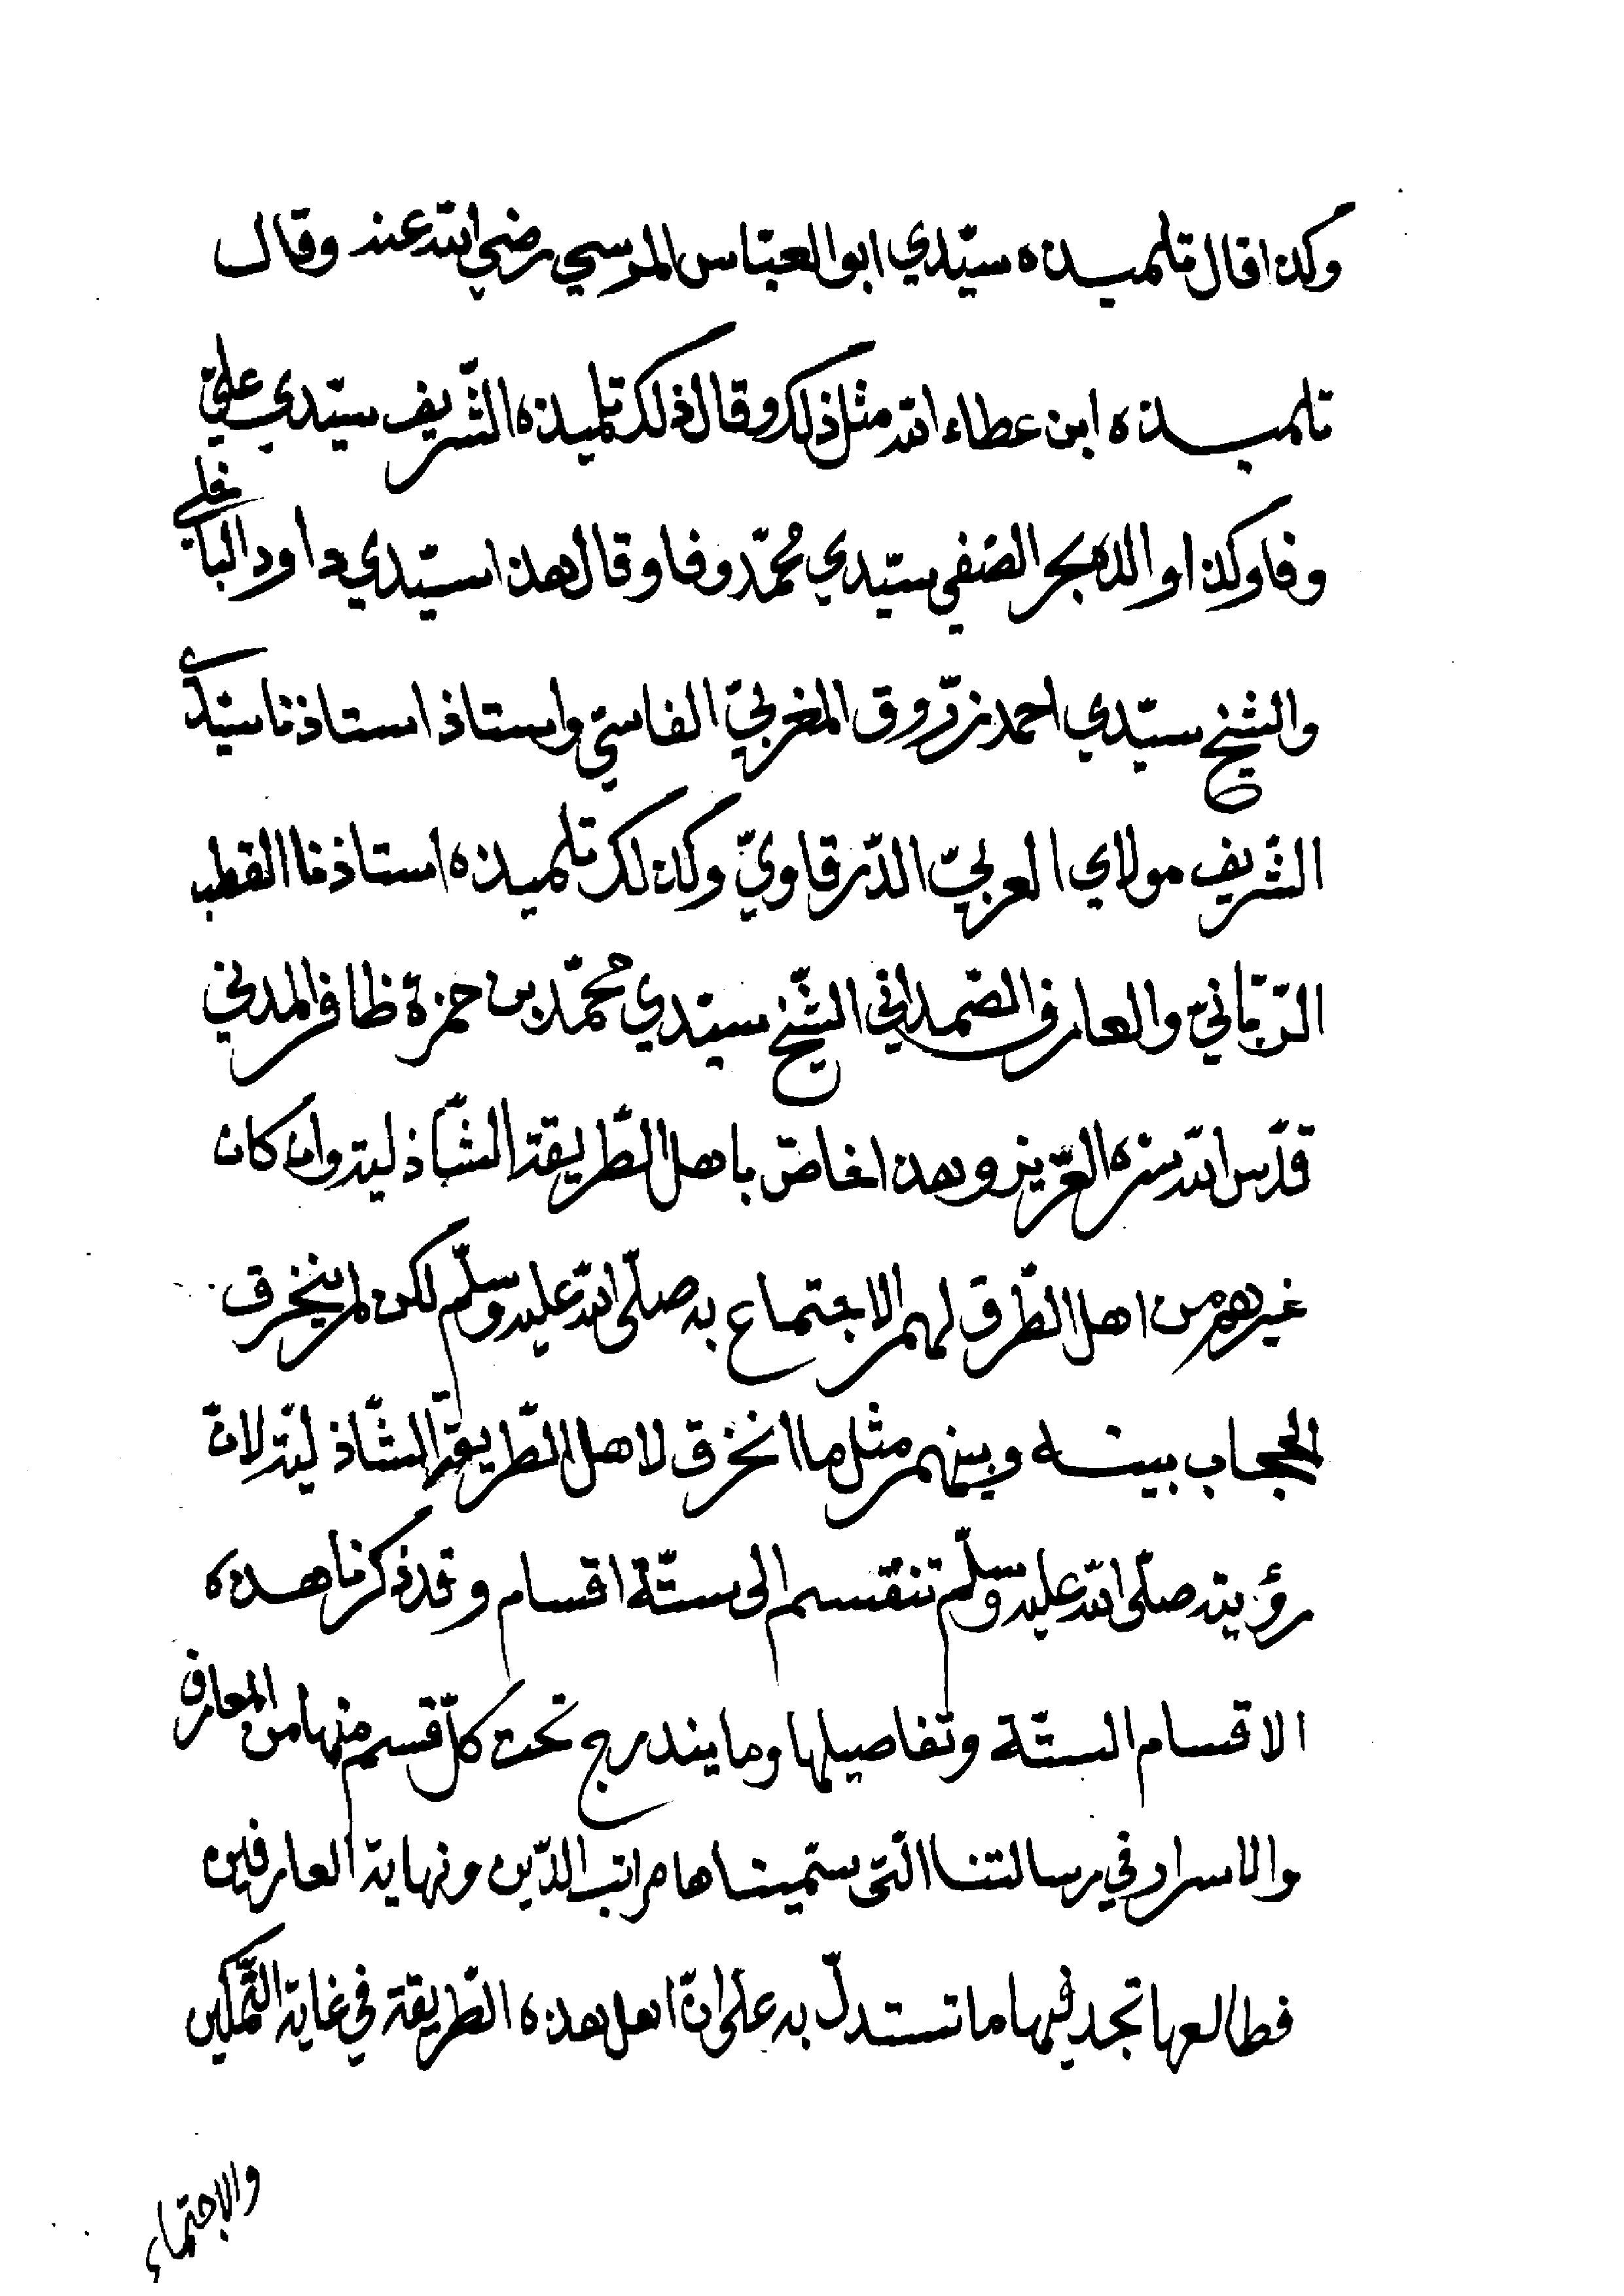 وكذا قال تلميذه سيّدي ابو العبّاس المرسي رضي الله عنه وقال
تلميذه ابن عطاء الله مثل ذلك وقال ذلك تلميذه الشّريف سيّدي عليّ
وفا وكذا والده بحر الصّفى سيّدي مُحمّد وفا وقال هذا سيّدي داود الباخلي
والشيخ سيّدي احمد زرّوق المغربيّ الفاسيّ واستاذ استاذنا سيّدي
الشّريف مولاي العربيّ الدّرقاويّ وكذلك تلميذه استاذنا القطب
الرّبّانيّ والعارف الصّمداني الشّيخ سيّدي مُحمّد بن حمزة ظافر المدني
قدّس الله سرّه العزيز وهذا خاصّ باهل الطّريقة الشّاذليّة وان كان
غيرهم من اهل الطّرق لهم الاجتماع به صلّى الله عليه وسلّم لكن لم ينخرق
الحجاب بينه وبينهم مثل ما انخرق لاهل الطّريقة الشّاذليّة لانّ
رؤيته صلّى الله عليه وسلّم تنقسم الى ستّة اقسام وقد ذكرنا هذه
الاقسام الستّة وتفاصيلها وما يندرج تحت كلّ قسم منها من المعارف
والاسرار في رسالتنا الّتى سمّيناها مراتب الدّين ونهاية العارفين
فطالعها تجد فيها ما تستدلّ به على انّ اهل هذه الطّريقة في غاية التّمكين
والاجتماع